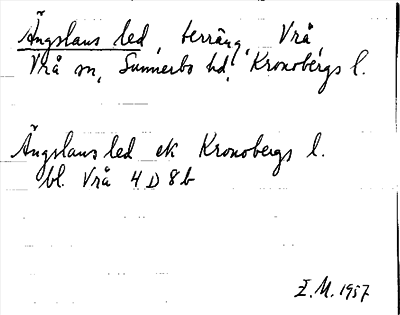 Ängslans led, terräng, Vrå,
Vrå sn, Sunnerbo hd, Kronobergs l.
Ängslans led ek Kronobergs l.
bl. Vrå 4 D 8 b
E.M. 1957